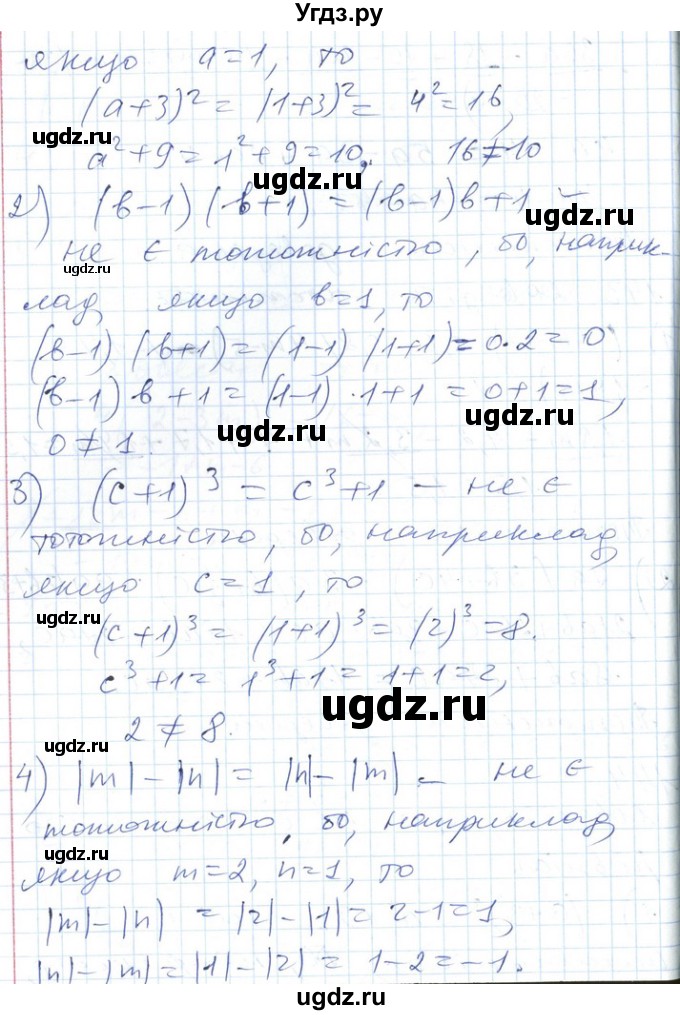 Угдз.ру
якщо a=1, то
(a+3)² = (1+3)² = 4² = 16,
ugdz.ru
a²+9 = 1²+9 = 10. 16≠10
ugdz.ru
ugdz.ru
2) (b-1)(b+1) = (b-1)b+1 –
не є тотожністю, бо, наприк-
ugdz.ru
лад, якщо b=1, то
ugdz.ru
(b-1)(b+1) = (1-1)(1+1) = 0·2 = 0
(b-1)b+1 = (1-1)·1+1 = 0+1 = 1,
ugdz.ru
ugdz.ru
0≠1.
3) (c+1)³ = c³+1 – не є
тотожністю, бо, наприклад
ugdz.ru
якщо c=1, то
ugdz.ru
(c+1)³ = (1+1)³ = (2)³ = 8.
c³+1 = 1³+1 = 1+1 = 2,
ugdz.ru
2≠8.
ugdz.ru
4) |m|-|n| = |n|-|m| – не є
ugdz.ru
тотожністю, бо, наприклад
ugdz.ru
якщо m=2, n=1, то
ugdz.ru
|m|-|n| = |2|-|1| = 2-1 = 1,
|n|-|m| = |1|-|2| = 1-2 = -1.
ugdz.ru
ugdz.ru